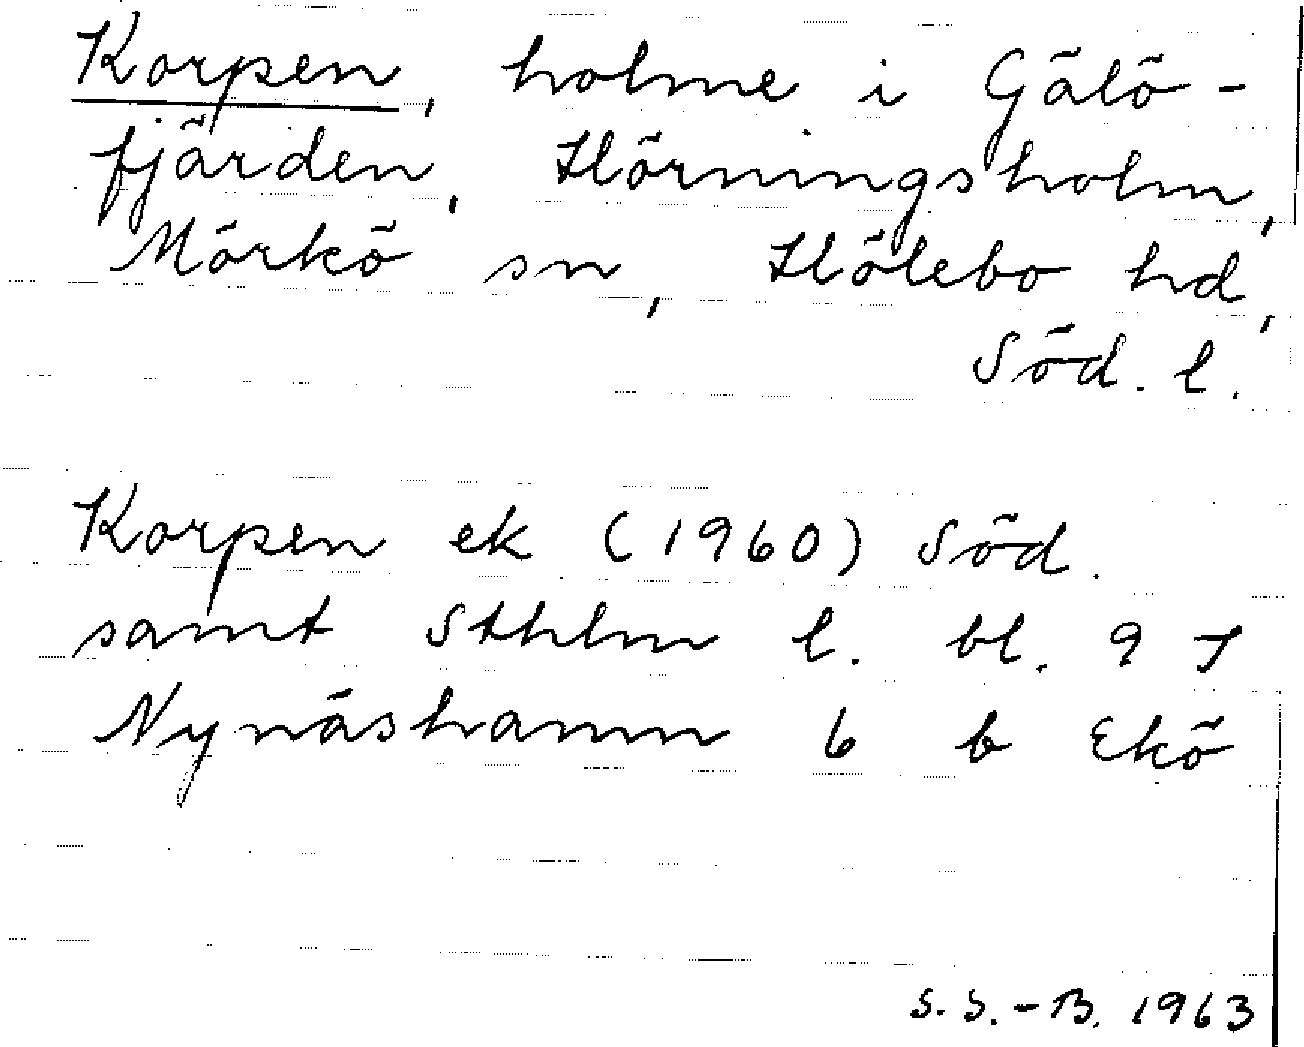 Korpen, holme i Gälö-
fjärden, Hörningsholm,
Mörkö sn, Hölebo hd,
Söd. l.
Korpen ek (1960) Söd.
samt Sthlm l. bl. 9 I
Nynäshamn 6 b Ekö
S. S.-B. 1963